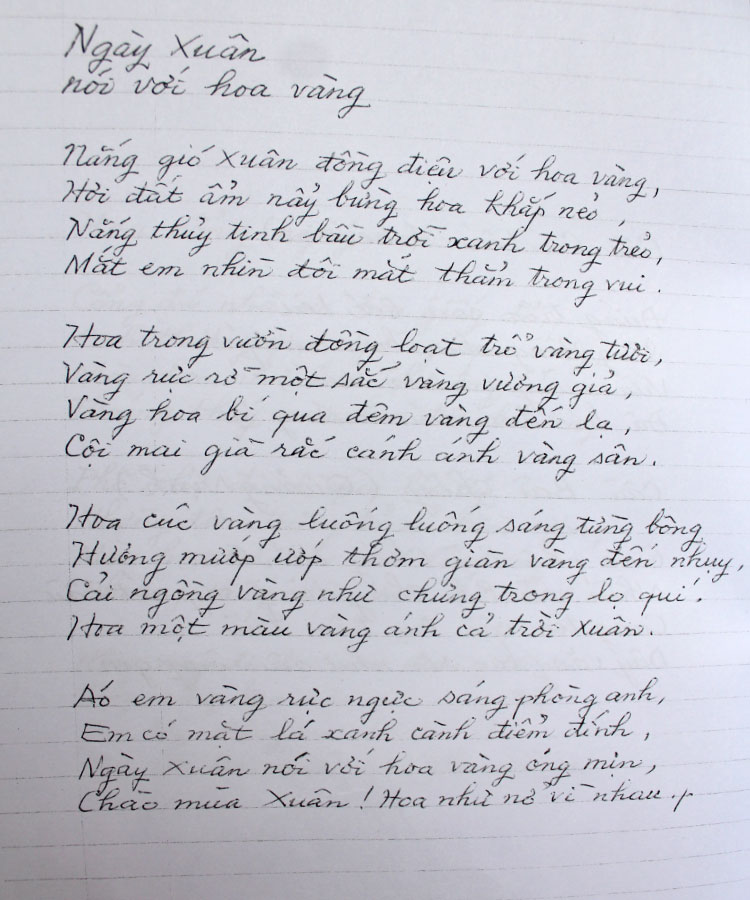 Ngày Xuân
nói với hoa vàng
Nắng gió Xuân đồng điệu với hoa vàng,
Hơi đất ẩm nảy bừng hoa khắp nẻo,
Nắng thủy tinh bầu trời xanh trong trẻo,
Mắt em nhìn đôi mắt thẳm trong vui.
Hoa trong vườn đồng loạt trổ vàng tươi,
Vàng rực rỡ một sắc vàng vương giả,
Vàng hoa bí qua đêm vàng đến lạ,
Cội mai già rắc cánh ánh vàng sân.
Hoa cúc vàng luống luống sáng từng bông
Hương mướp ướp thơm giàn vàng đến nhụy,
Cải ngồng vàng như chưng trong lọ quí.
Hoa một màu vàng ánh cả trời Xuân.
Áo em vàng rực ngực sáng phòng anh,
Em có mặt lá xanh cành điểm đính,
Ngày Xuân nói với hoa vàng óng mịn,
Chào mùa Xuân! Hoa như nở vì nhau.